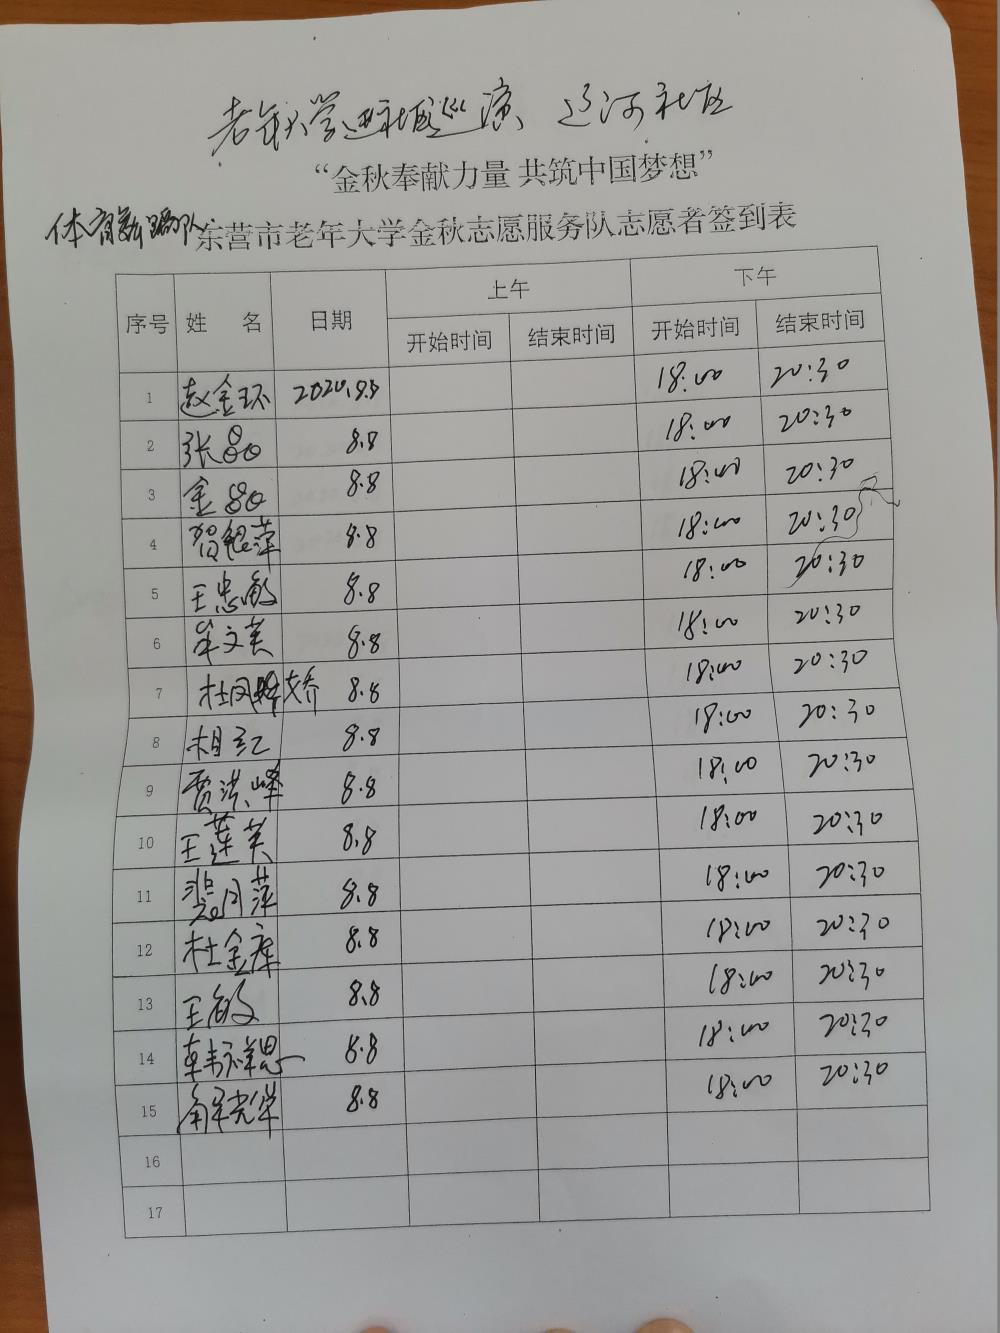 老年大学进社区巡演 辽河社区
“金秋奉献力量 共筑中国梦想”
体育舞蹈队
东营市老年大学金秋志愿服务队志愿者签到表
序号 姓 名 日期 上午 下午
开始时间 结束时间 开始时间 结束时间
1 赵金环 2020.8.8 18:00 20:30
2 张晶 8.8 18:00 20:30
3 金晶 8.8 18:00 20:30
4 贺银萍 8.8 18:00 20:30
5 王忠敏 8.8 18:00 20:30
6 牟文英 8.8 18:00 20:30
7 杜凤娇 8.8 18:00 20:30
8 相红 8.8 18:00 20:30
9 贾洪峰 8.8 18:00 20:30
10 王莲英 8.8 18:00 20:30
11 月萍 8.8 18:00 20:30
12 杜金库 8.8 18:00 20:30
13 王敏 8.8 18:00 20:30
14 韩祥恩 8.8 18:00 20:30
15 解光华 8.8 18:00 20:30
16
17